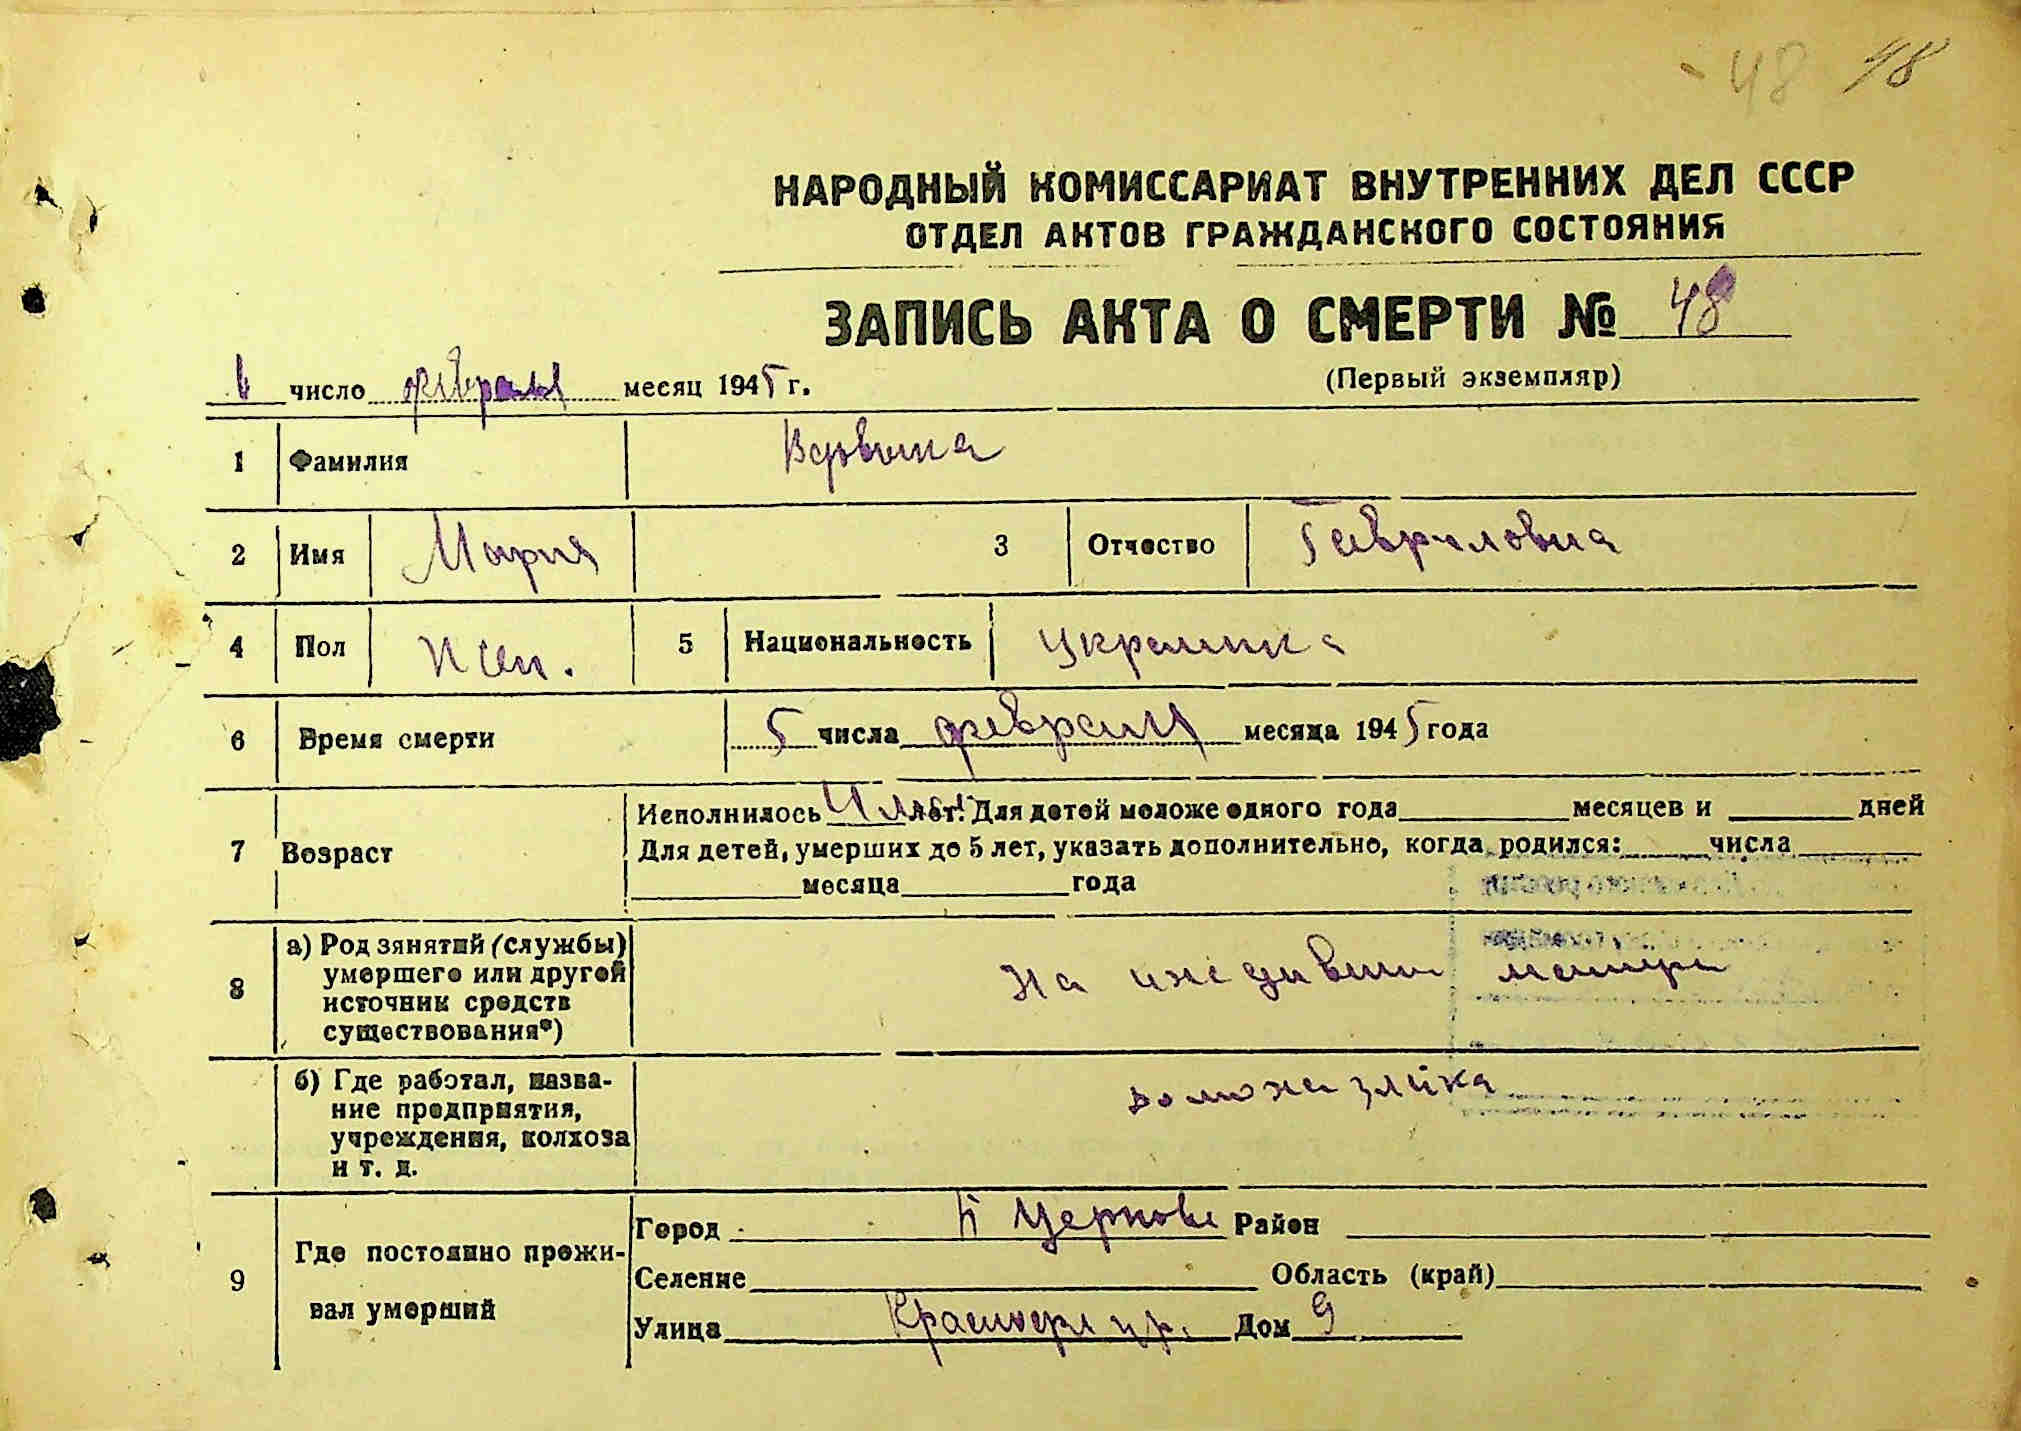 48 48
НАРОДНЫЙ КОМИССАРИАТ ВНУТРЕННИХ ДЕЛ СССР
ОТДЕЛ АКТОВ ГРАЖДАНСКОГО СОСТОЯНИЯ
ЗАПИСЬ АКТА О СМЕРТИ № 48
6 число февраля месяц 1945 г.
(Первый экземпляр)
1 Фамилия
2 Имя Мария 3 Отчество Гавриловна
4 Пол жен. 5 Национальность украинка
6 Время смерти 5 числа февраля месяца 1945 года
Исполнилось лет. Для детей моложе одного года месяцев и дней
7 Возраст Для детей, умерших до 5 лет, указать дополнительно, когда родился: числа
месяца года
8 а) Род занятий (службы) умершего или другой источник средств существования*) На иждивении матери
б) Где работал, название предприятия, учреждения, колхоза и т. д. домохозяйка
9 Где постоянно проживал умерший
Город Район
Селение Область (край)
Улица Дом 9